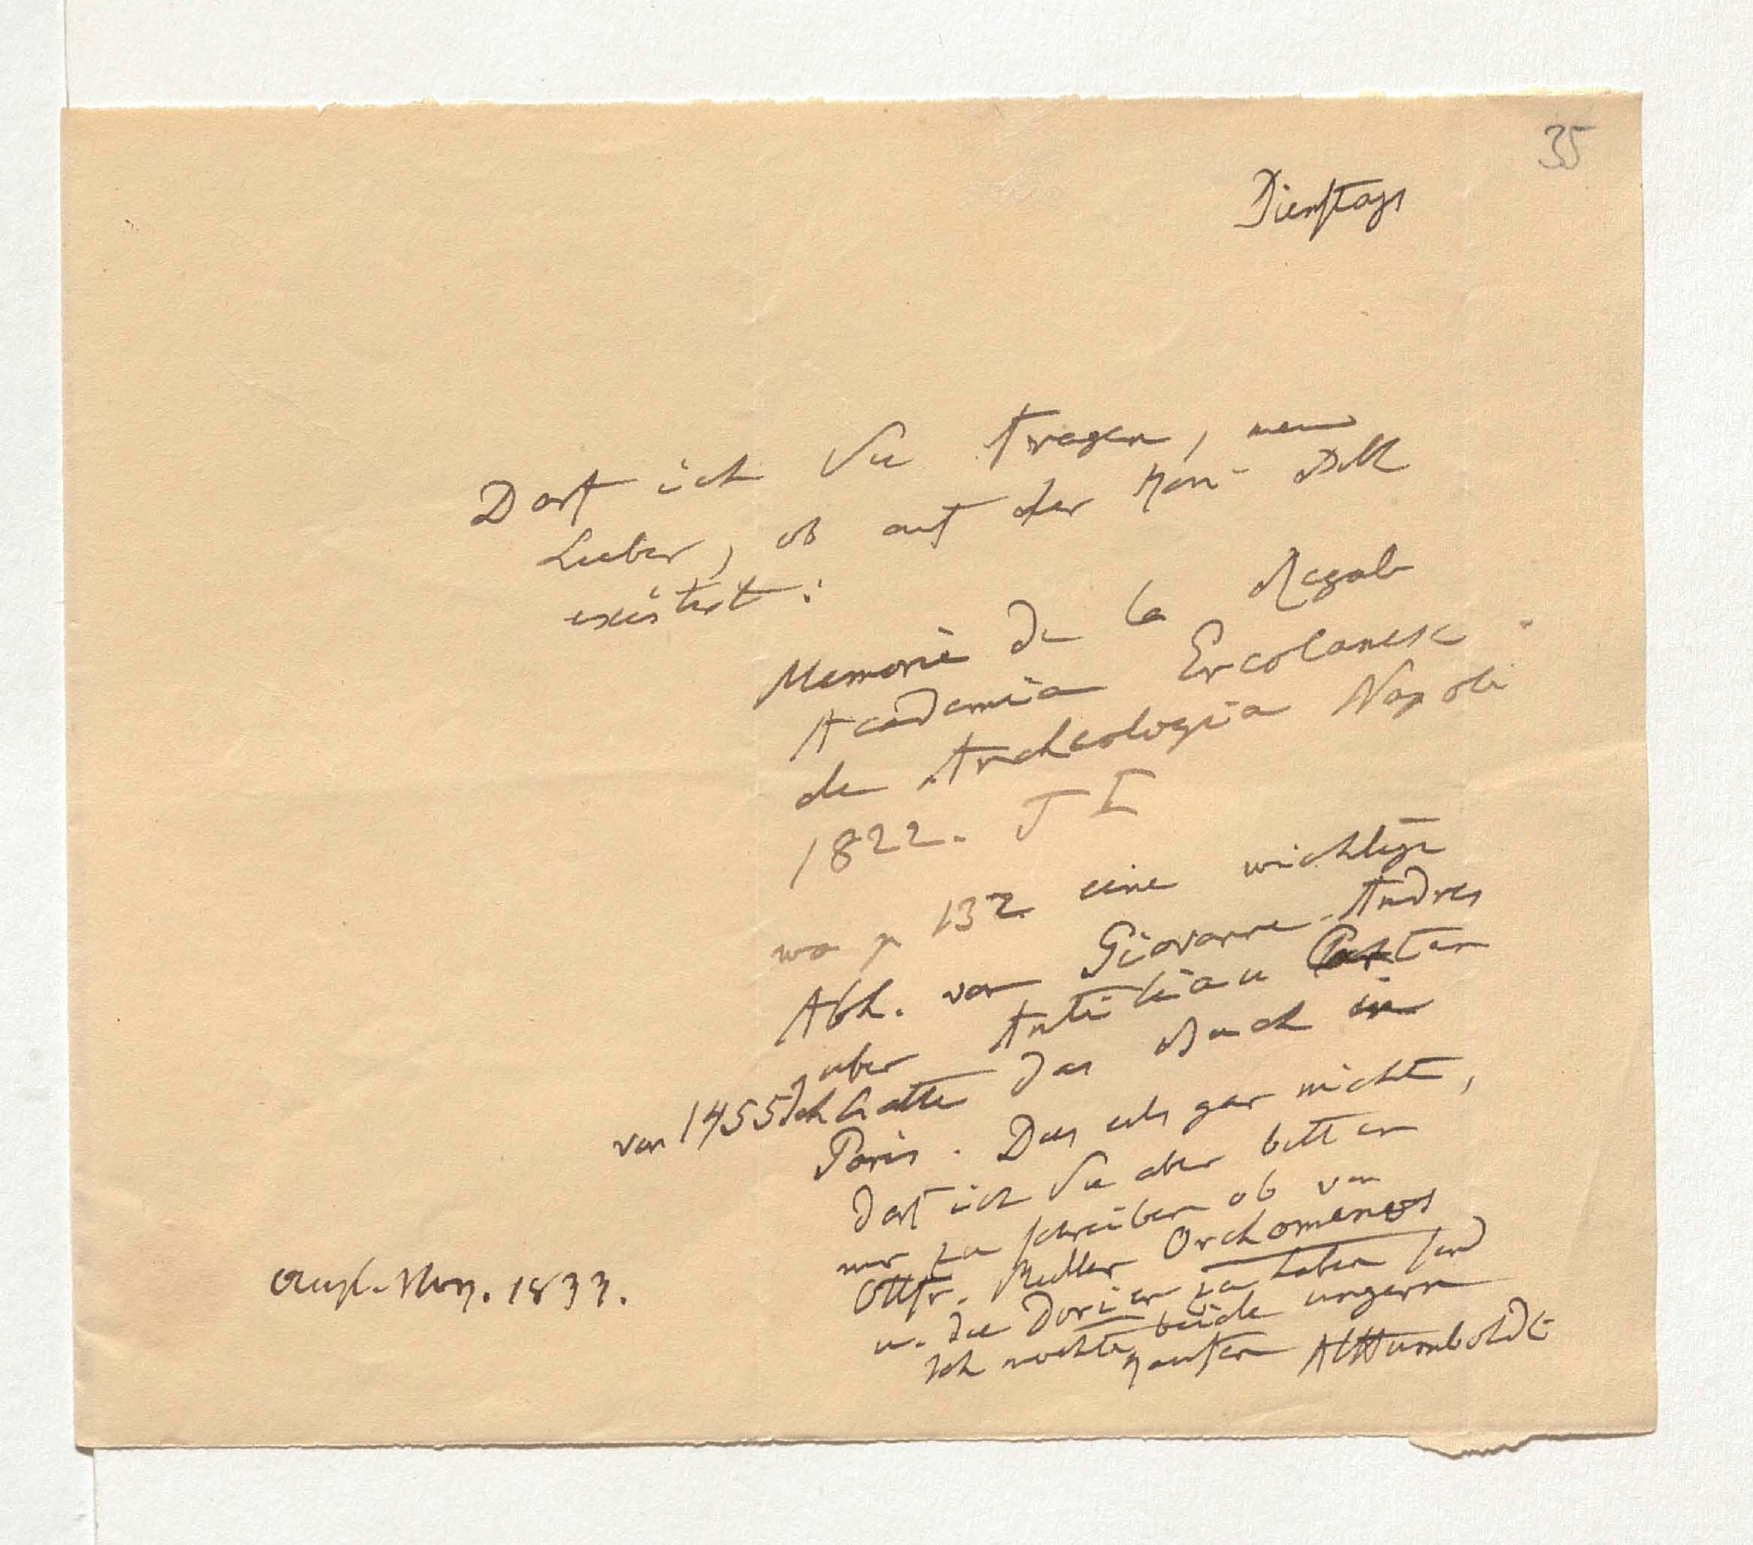 35
Dienstags
Darf ich Sie fragen, mein
Lieber, ob auf der Kön. Bibl
existirt:
Memorie de la Regale
Academia Ercolanese
de Archeologia Napoli
1822. T I
wo p 132 eine wichtige
Abh. von Giovanne Andres
uber Antillen Karten
von 1455 Ich hatte das Buch in
Paris. Das eils gar nicht,
Darf ich Sie aber bitten
mir zu schreiben ob von
Ottfr. Muller Orchomenos
u. die Dorier zu haben sind
Ich mochte beide ungern
kaufen AlHumboldt
1833.